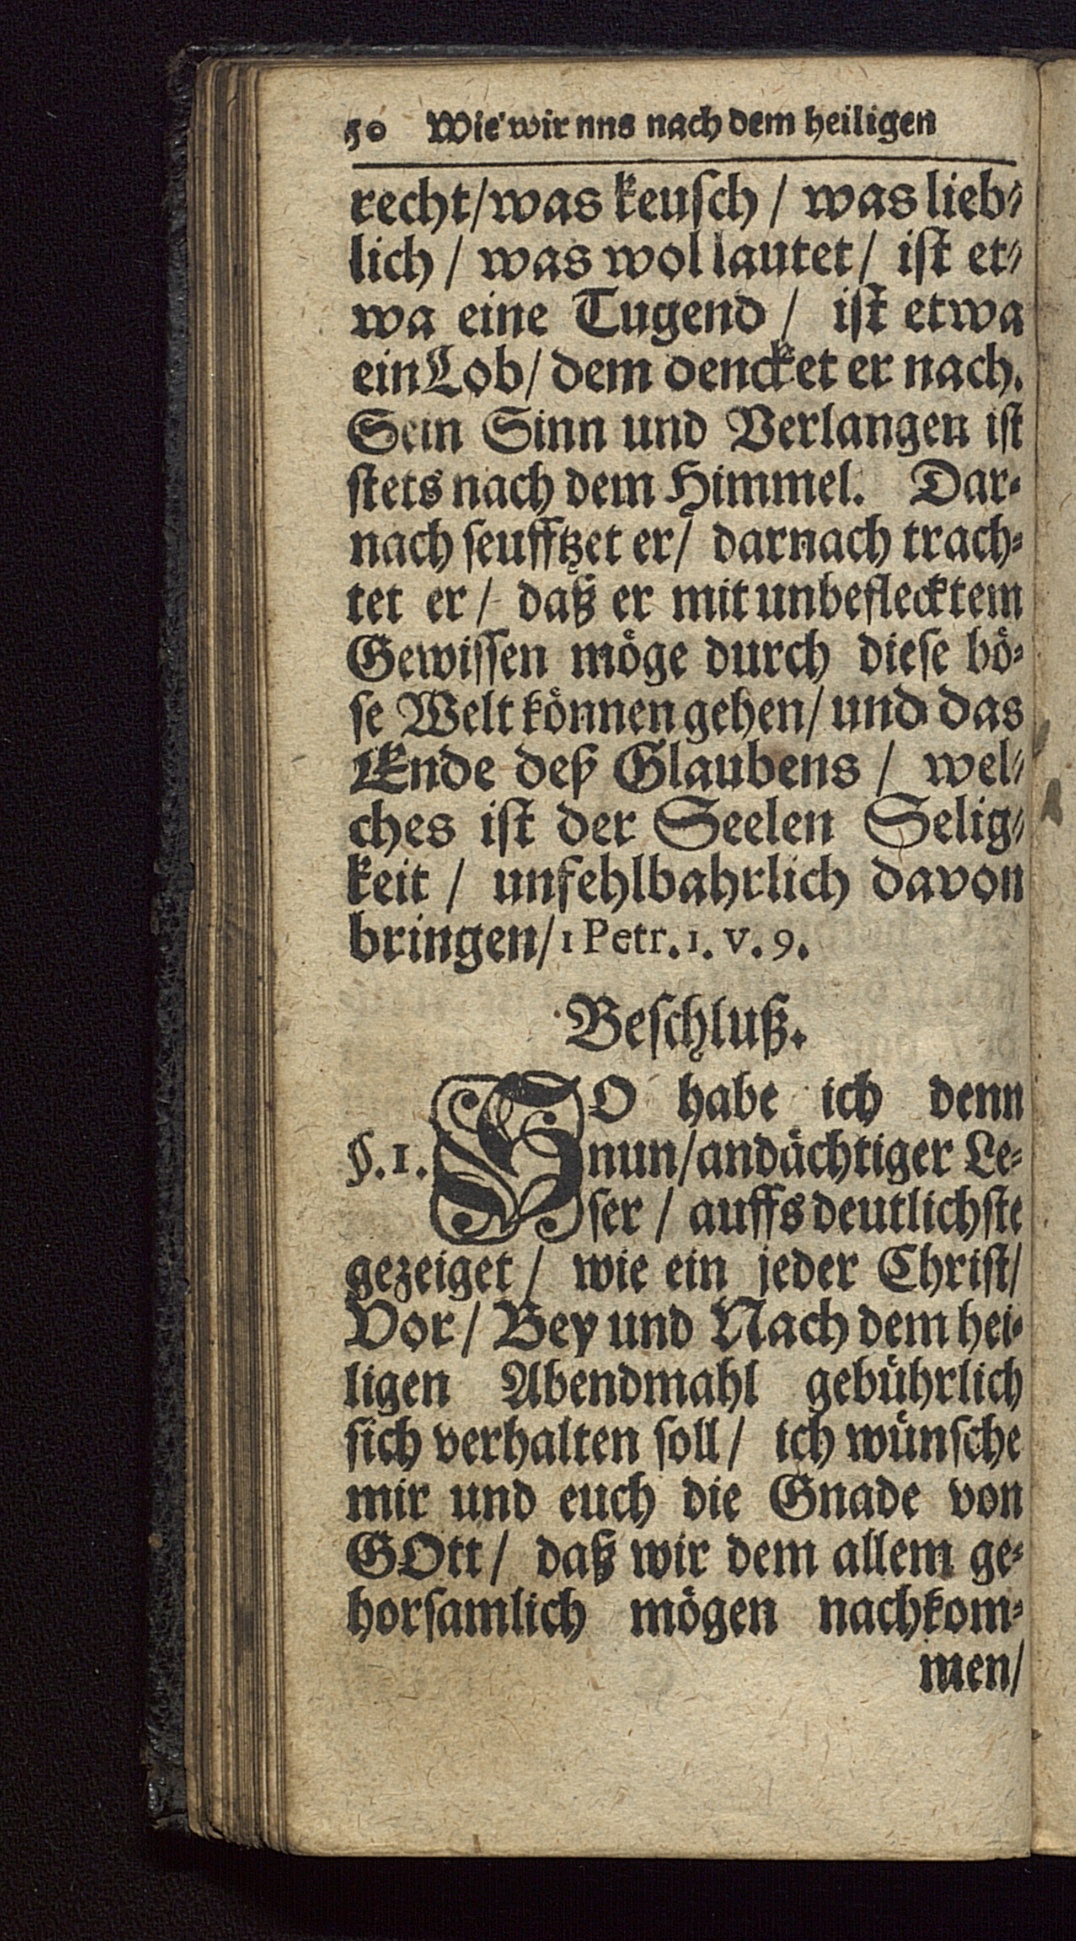 50 Wie wir nns nach dem heiligen
recht/was keuſch / was lieb⸗
lich / was wol lautet / iſt et⸗
wa eine Tugend / iſt etwa
ein Lob/ dem dencket er nach.
Sein Sinn und Verlangen iſt
ſtets nach dem Himmel. Dar⸗
nach ſeufftzet er/ darnach trach⸗
tet er / daß er mit unbeflecktem
Gewiſſen möge durch dieſe bö⸗
ſe Welt können gehen/ und das
Ende deß Glaubens / wel⸗
ches iſt der Seelen Selig⸗
keit / unfehlbahrlich davon
bringen/ 1 Petr. 1. v. 9.
Beſchluß.
SO habe ich denn
§. 1. nun/andächtiger Le⸗
ſer / auffs deutlichſte
gezeiget / wie ein jeder Chriſt/
Vor / Bey und Nach dem hei⸗
ligen Abendmahl gebührlich
ſich verhalten ſoll / ich wünſche
mir und euch die Gnade von
GOtt / daß wir dem allem ge⸗
horſamlich mögen nachkom⸗
men/